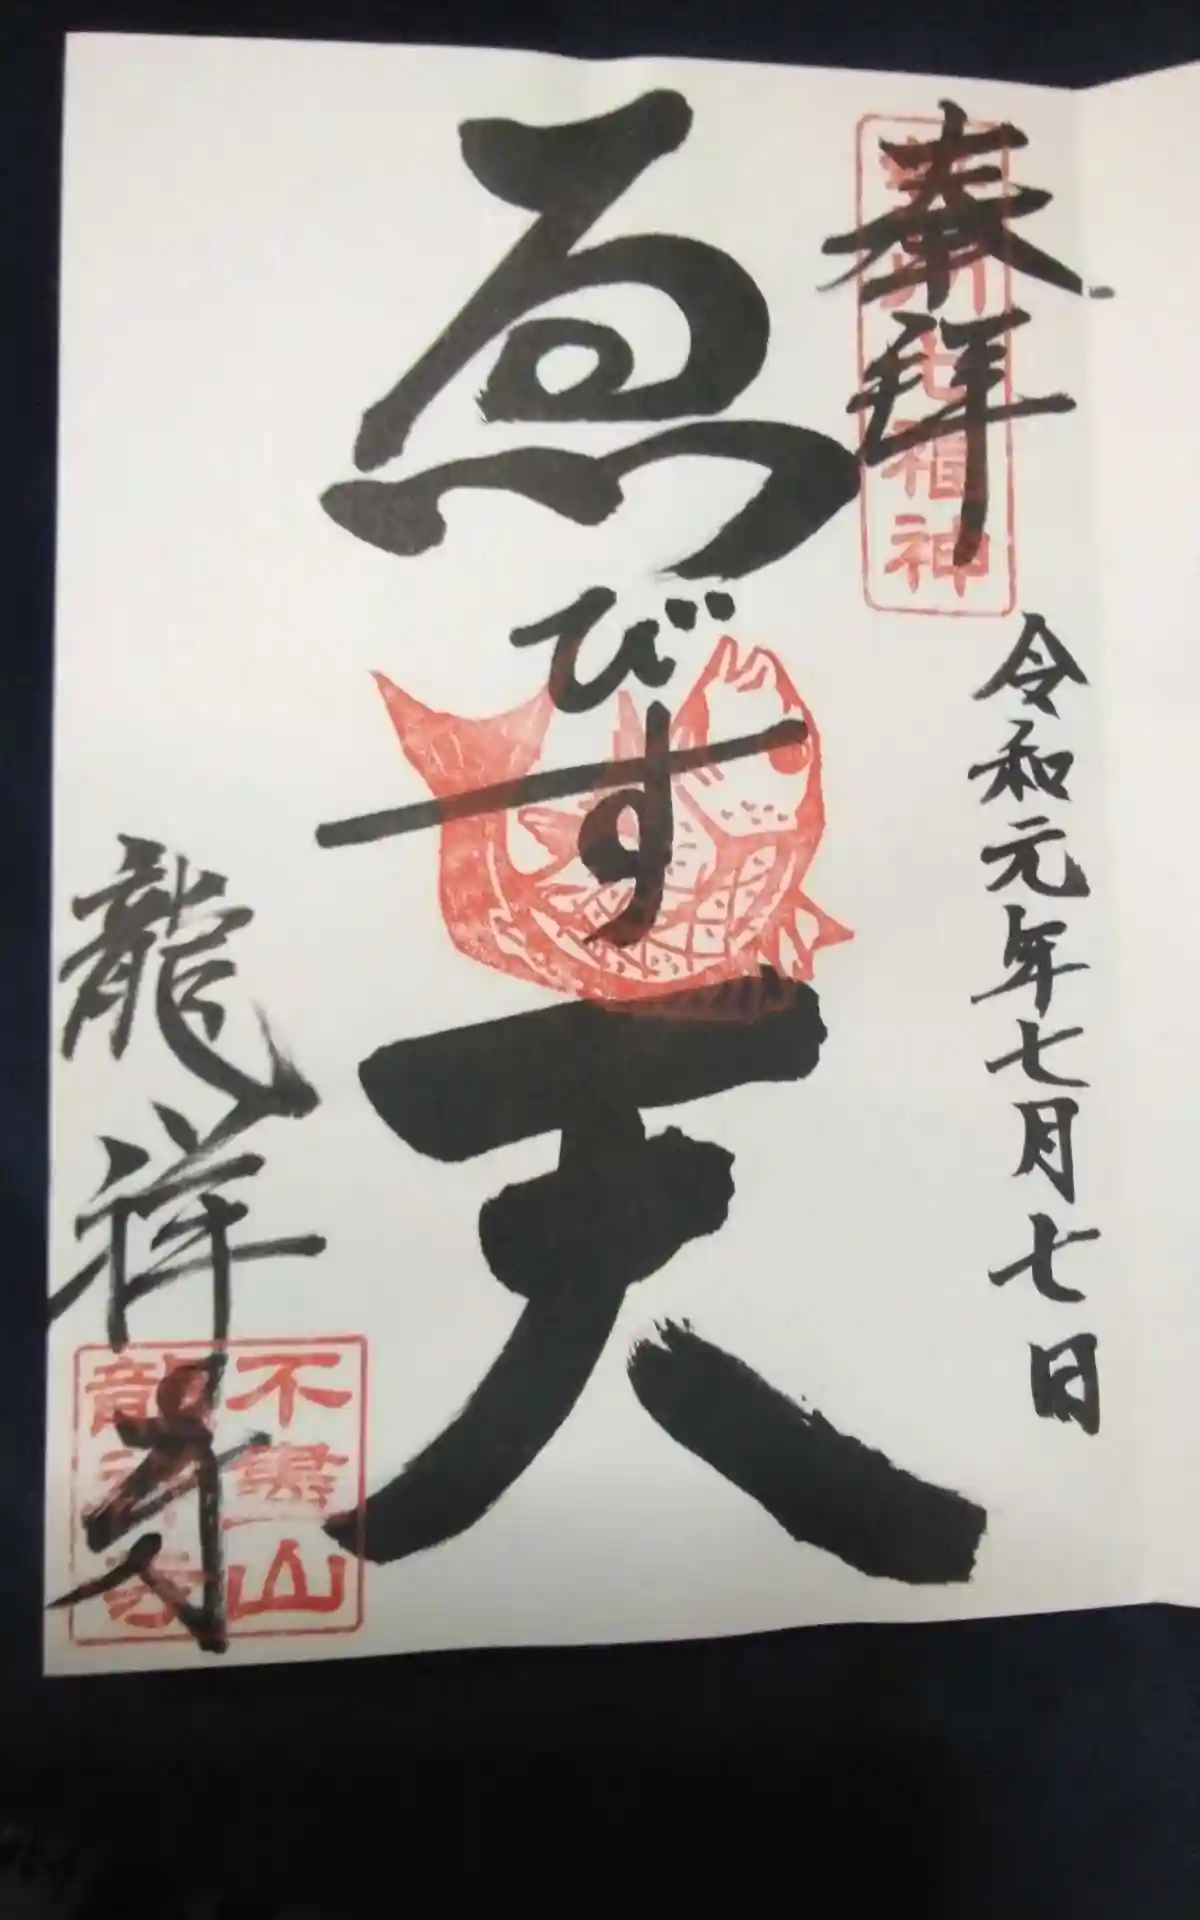 奉拝
七福神
令和元年七月七日
ゑびす
天
龍祥寺
不
山